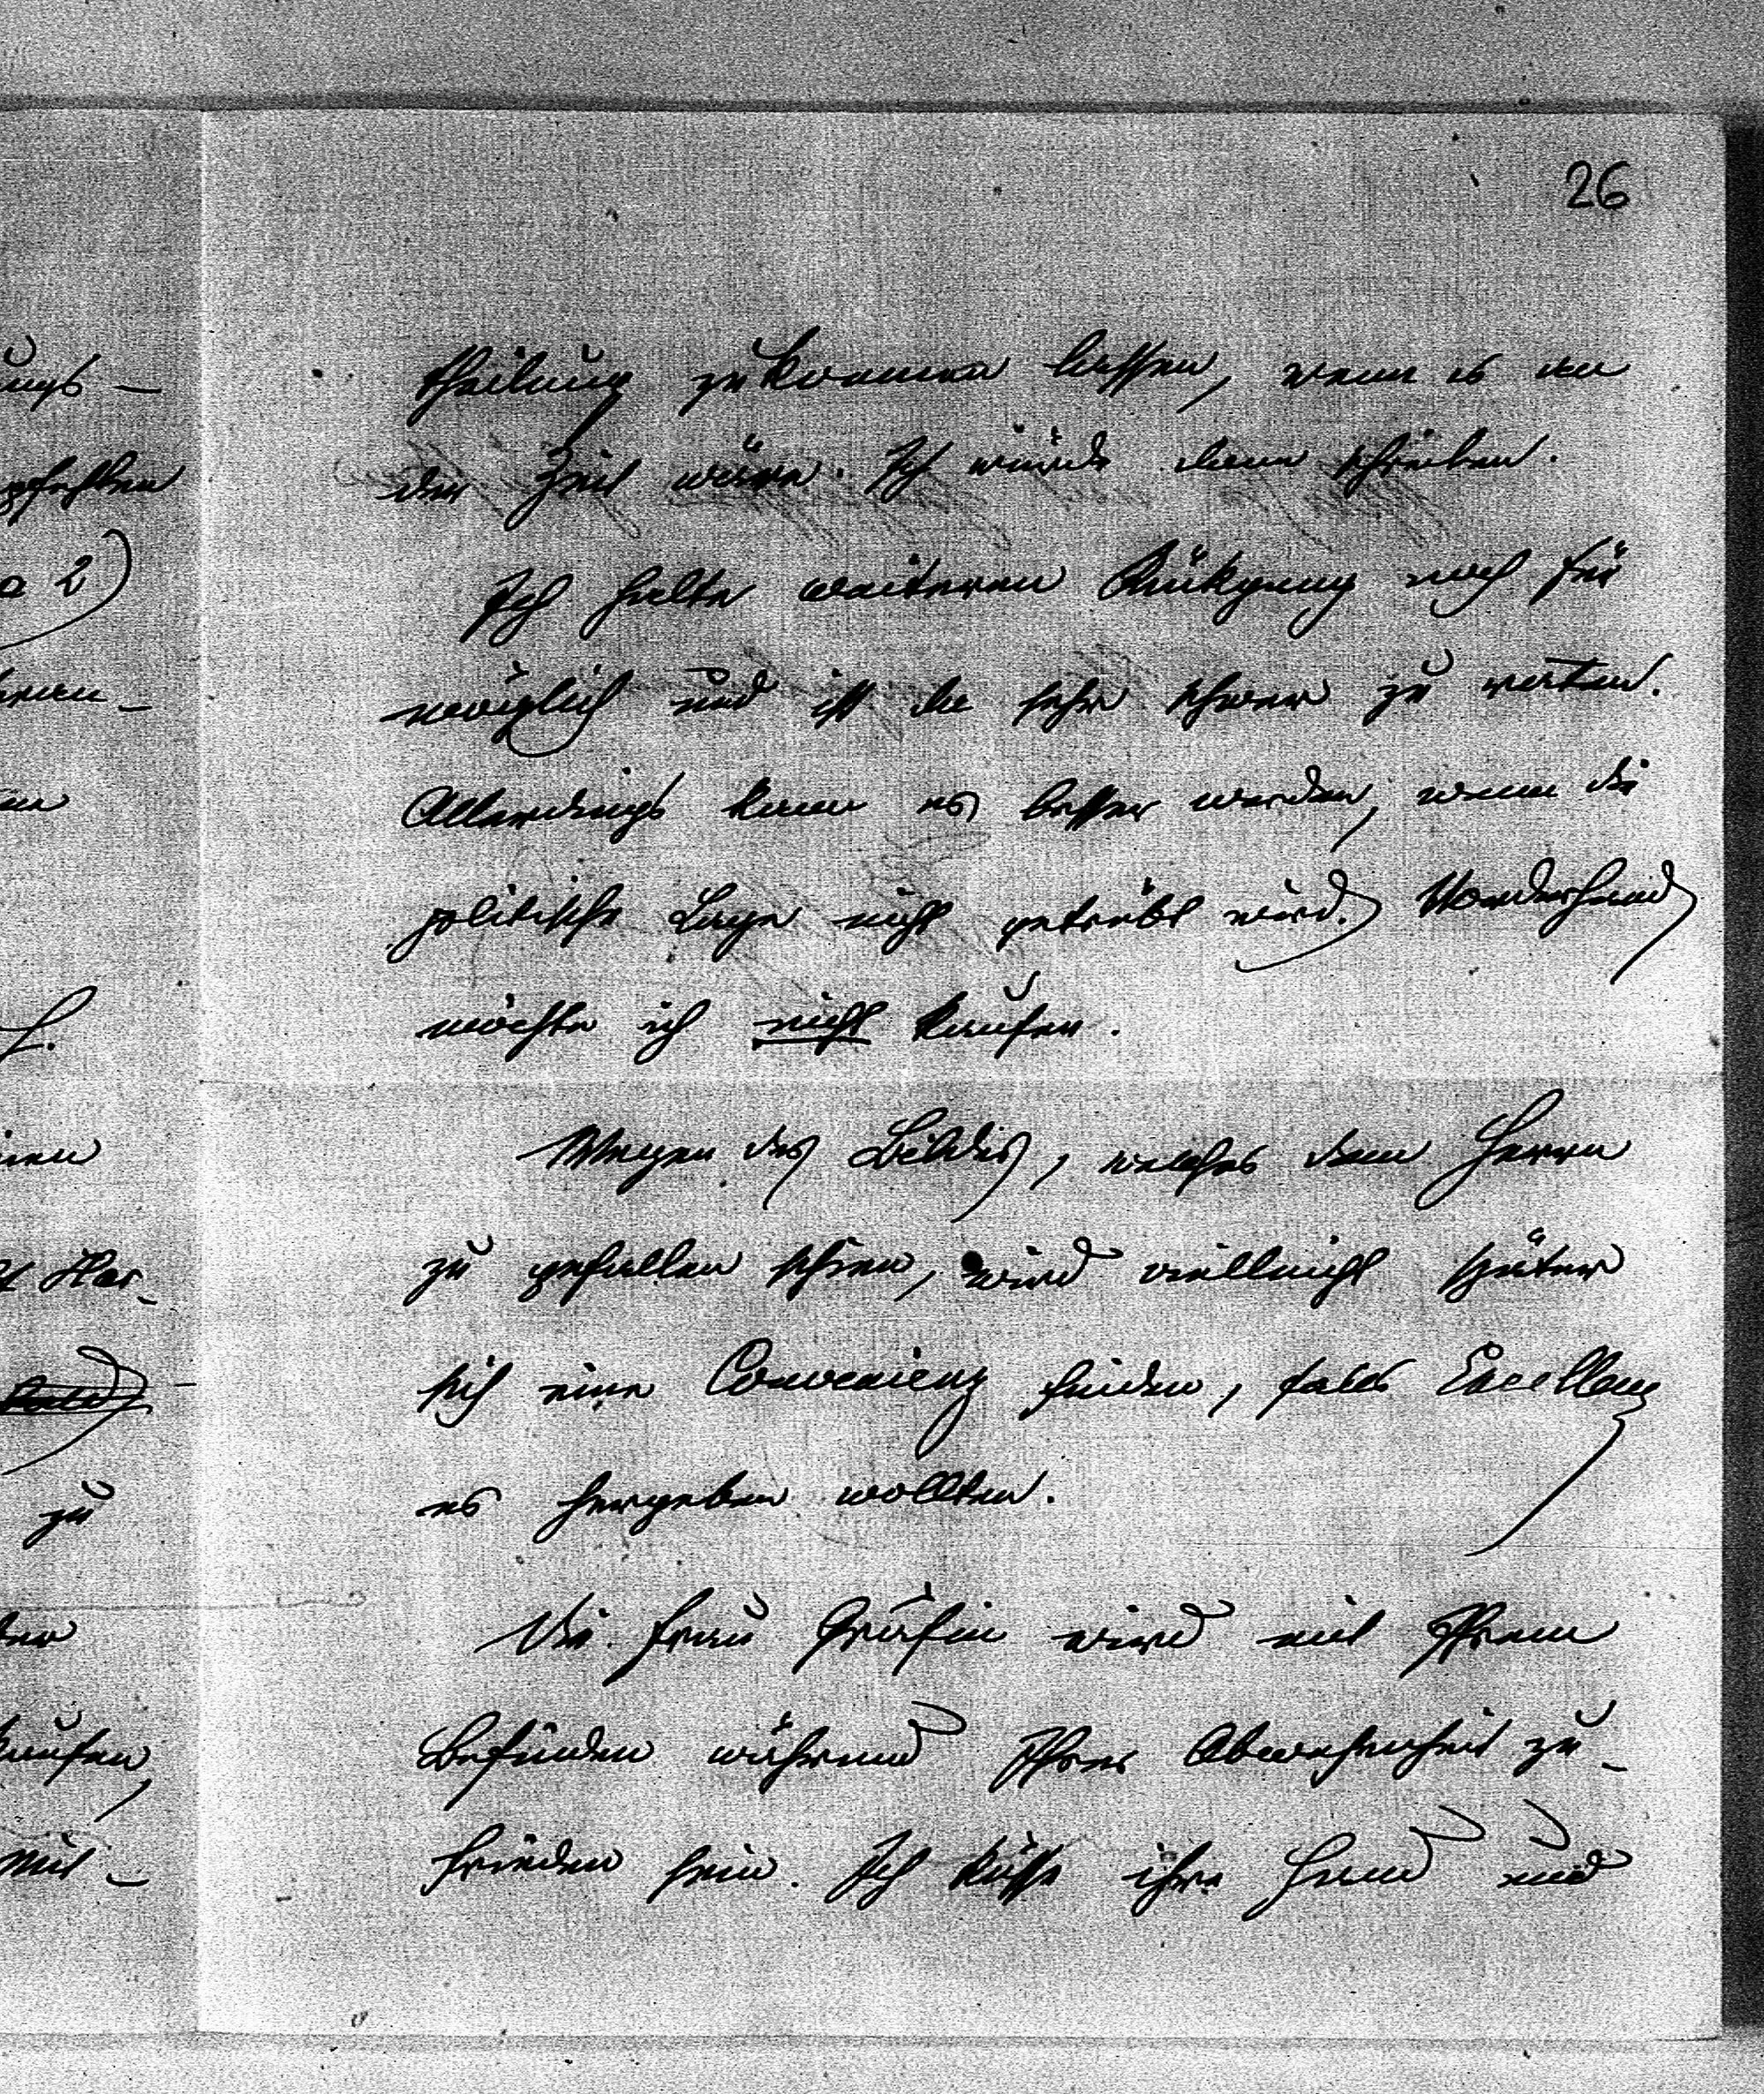 26
theilung zukommen lassen, wenn es an
der Zeit wäre. Ich würde dann schreiben.
Ich halte weiteren Rückgang noch für
möglich und ist da sehr schwer zu raten.
Allerdings kann es besser werden, wenn die
politische Lage nicht getrübt wird. Vorderhand
möchte ich nicht kaufen.
Wegen des Bildes, welches dem Herrn
zu gefallen schien, wird vielleicht später
sich eine Convenienz finden, falls Excellenz
es hergeben wollten.
Die Frau Gräfin wird mit Ihrem
Befinden während Ihrer Abwesenheit zu-
frieden sein. Ich küsse ihre Hand und